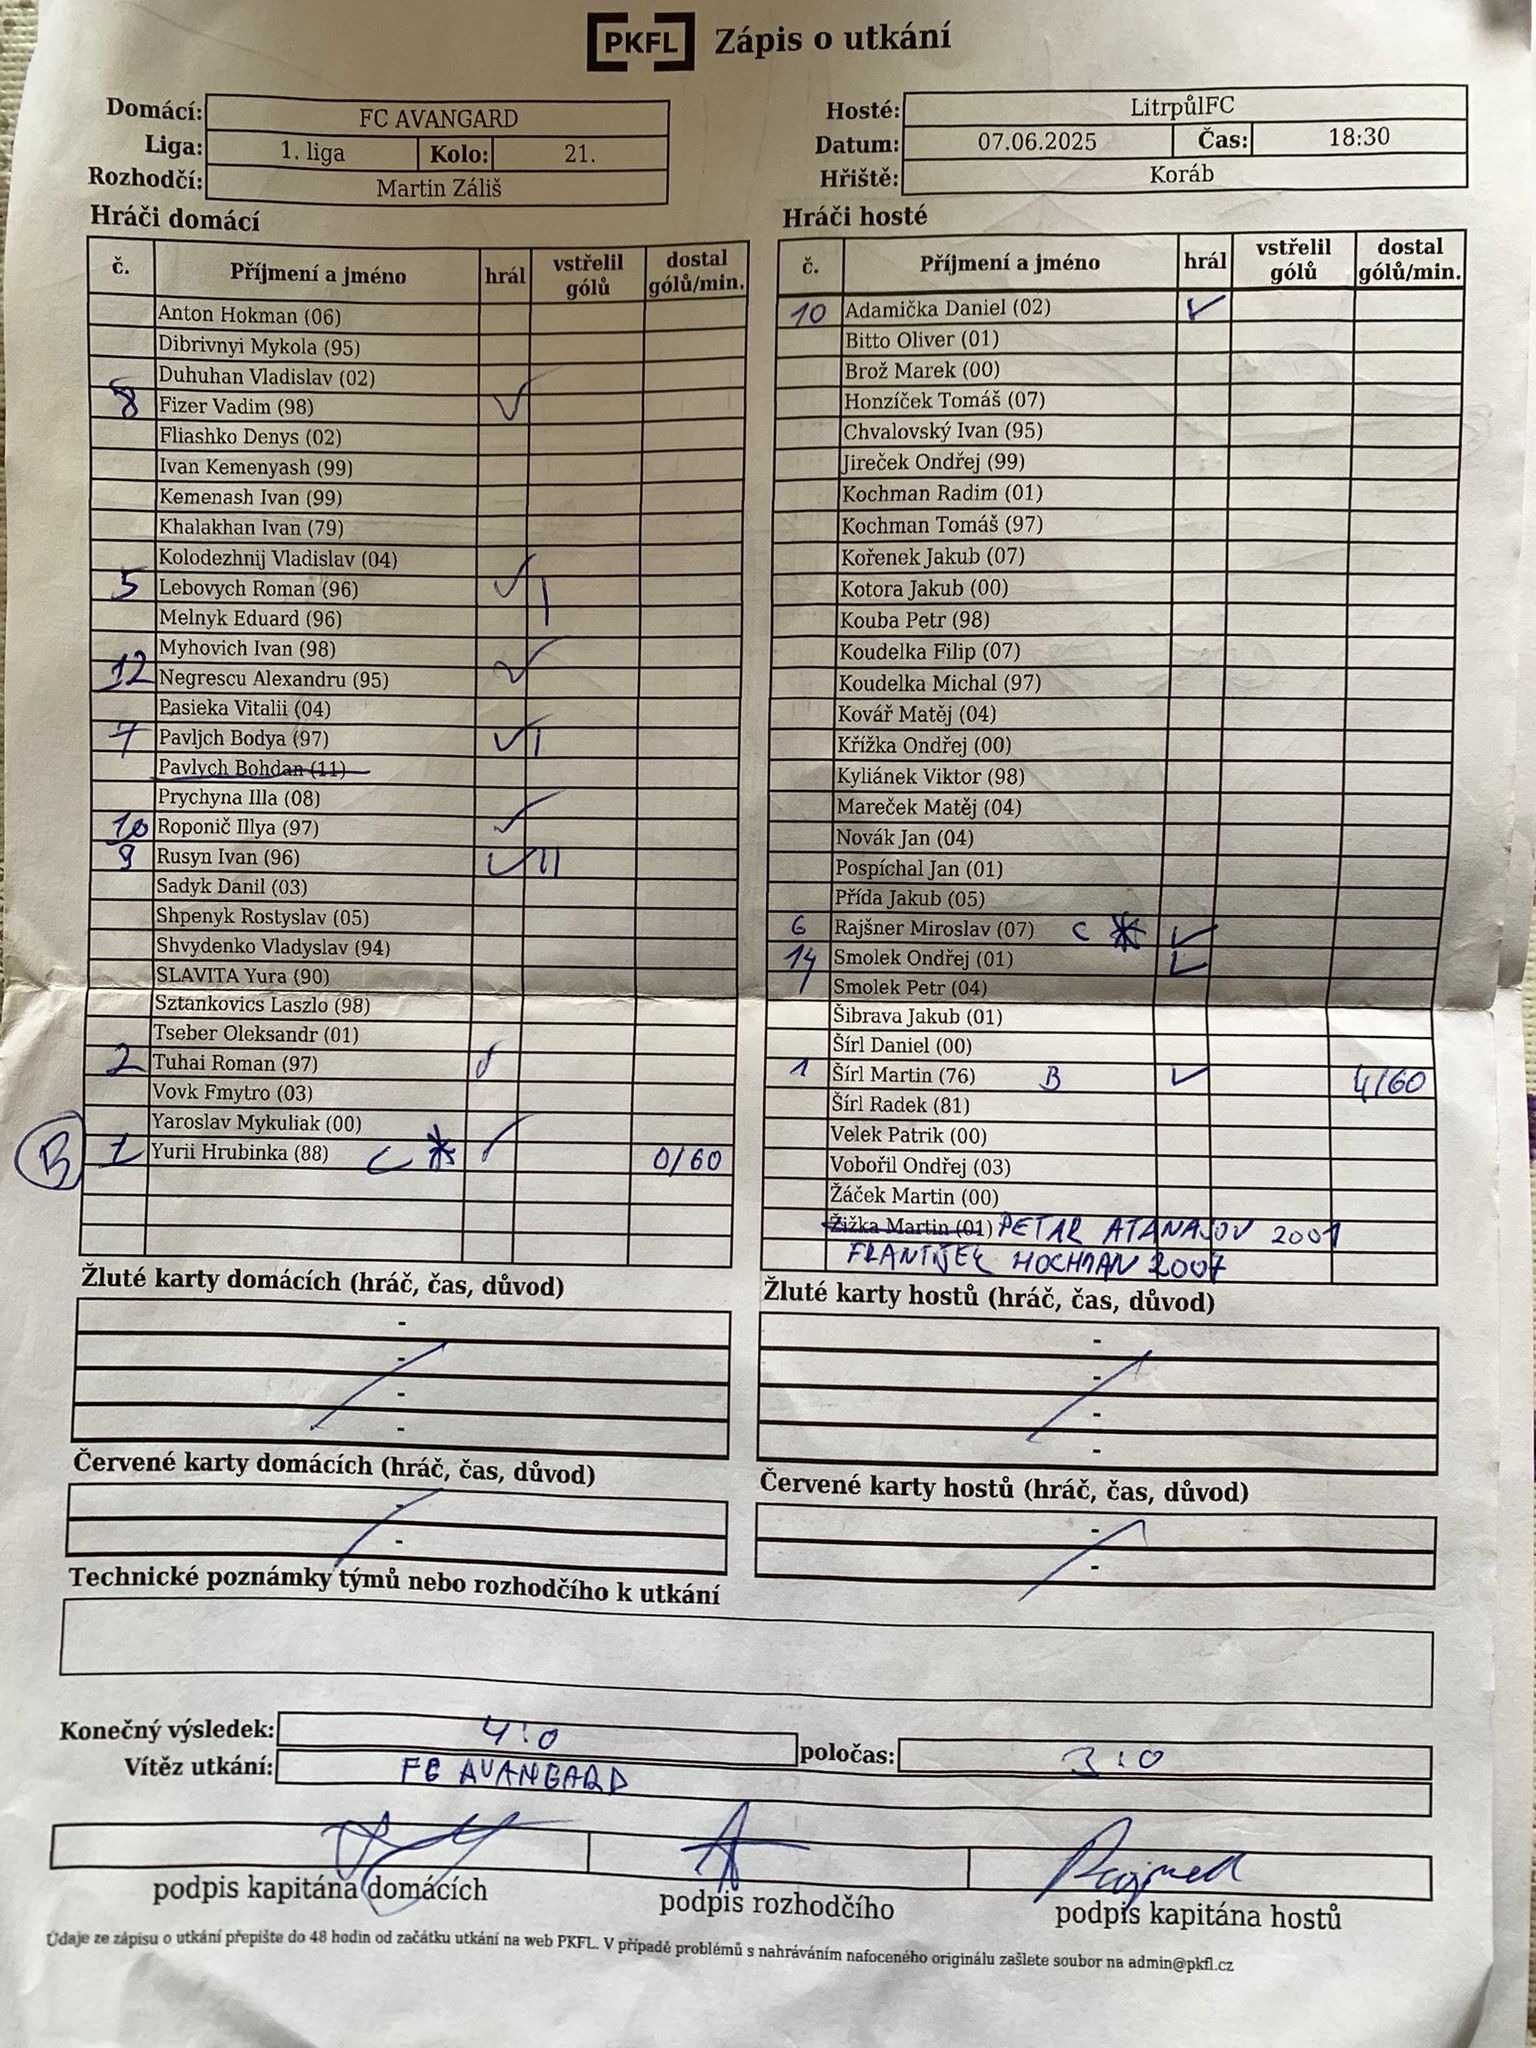 PKFL Zápis o utkání
Domácí: FC AVANGARD
Liga: 1. liga Kolo: 21.
Rozhodčí: Martin Záliš
Hosté: LitrpůlFC
Datum: 07.06.2025 Čas: 18:30
Hřiště: Koráb
Hráči domácí
č. Příjmení a jméno hrál vstřelil gólů dostal gólů/min.
Anton Hokman (06)
Dibrivnyi Mykola (95)
Duhuhan Vladislav (02)
8 Fizer Vadim (98) ✓
Fliashko Denys (02)
Ivan Kemenyash (99)
Kemenash Ivan (99)
Khalakhan Ivan (79)
Kolodezhnij Vladislav (04)
5 Lebovych Roman (96) ✓ I
Melnyk Eduard (96)
Myhovich Ivan (98)
12 Negrescu Alexandru (95) ✓
Pasieka Vitalii (04)
7 Pavljch Bodya (97) ✓ I
Pavlych Bohdan (11)
Prychyna Illa (08)
10 Roponič Illya (97) ✓
9 Rusyn Ivan (96) ✓ II
Sadyk Danil (03)
Shpenyk Rostyslav (05)
Shvydenko Vladyslav (94)
SLAVITA Yura (90)
Sztankovics Laszlo (98)
Tseber Oleksandr (01)
2 Tuhai Roman (97) ✓
Vovk Fmytro (03)
Yaroslav Mykuliak (00)
B 1 Yurii Hrubinka (88) C * ✓ 0/60
Hráči hosté
č. Příjmení a jméno hrál vstřelil gólů dostal gólů/min.
10 Adamička Daniel (02) ✓
Bitto Oliver (01)
Brož Marek (00)
Honzíček Tomáš (07)
Chvalovský Ivan (95)
Jireček Ondřej (99)
Kochman Radim (01)
Kochman Tomáš (97)
Kořenek Jakub (07)
Kotora Jakub (00)
Kouba Petr (98)
Koudelka Filip (07)
Koudelka Michal (97)
Kovář Matěj (04)
Křížka Ondřej (00)
Kyliánek Viktor (98)
Mareček Matěj (04)
Novák Jan (04)
Pospíchal Jan (01)
Přída Jakub (05)
6 Rajšner Miroslav (07) C * ✓
14 Smolek Ondřej (01) ✓
Smolek Petr (04)
Šibrava Jakub (01)
Šírl Daniel (00)
1 Šírl Martin (76) B ✓ 4/60
Šírl Radek (81)
Velek Patrik (00)
Vobořil Ondřej (03)
Žáček Martin (00)
Žižka Martin (01) PETAR ATANASOV 2001
FRANTIŠEK HOCHMAN 2007
Žluté karty domácích (hráč, čas, důvod)
-
-
-
-
Žluté karty hostů (hráč, čas, důvod)
-
-
-
-
Červené karty domácích (hráč, čas, důvod)
-
-
Červené karty hostů (hráč, čas, důvod)
-
-
Technické poznámky týmů nebo rozhodčího k utkání
Konečný výsledek: 4:0 poločas: 3:0
Vítěz utkání: FC AVANGARD
podpis kapitána domácích podpis rozhodčího podpis kapitána hostů
Údaje ze zápisu o utkání přepište do 48 hodin od začátku utkání na web PKFL. V případě problémů s nahráváním nafoceného originálu zašlete soubor na admin@pkfl.cz